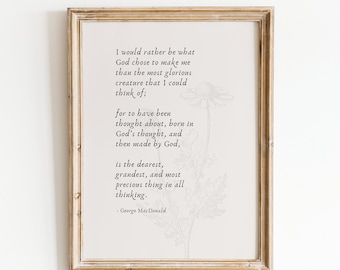 I would rather be what
God chose to make me
than the most glorious
creature that I could
think of;
for to have been
thought about, born in
God's thought, and
then made by God,
is the dearest,
grandest, and most
precious thing in all
thinking.
- George MacDonald